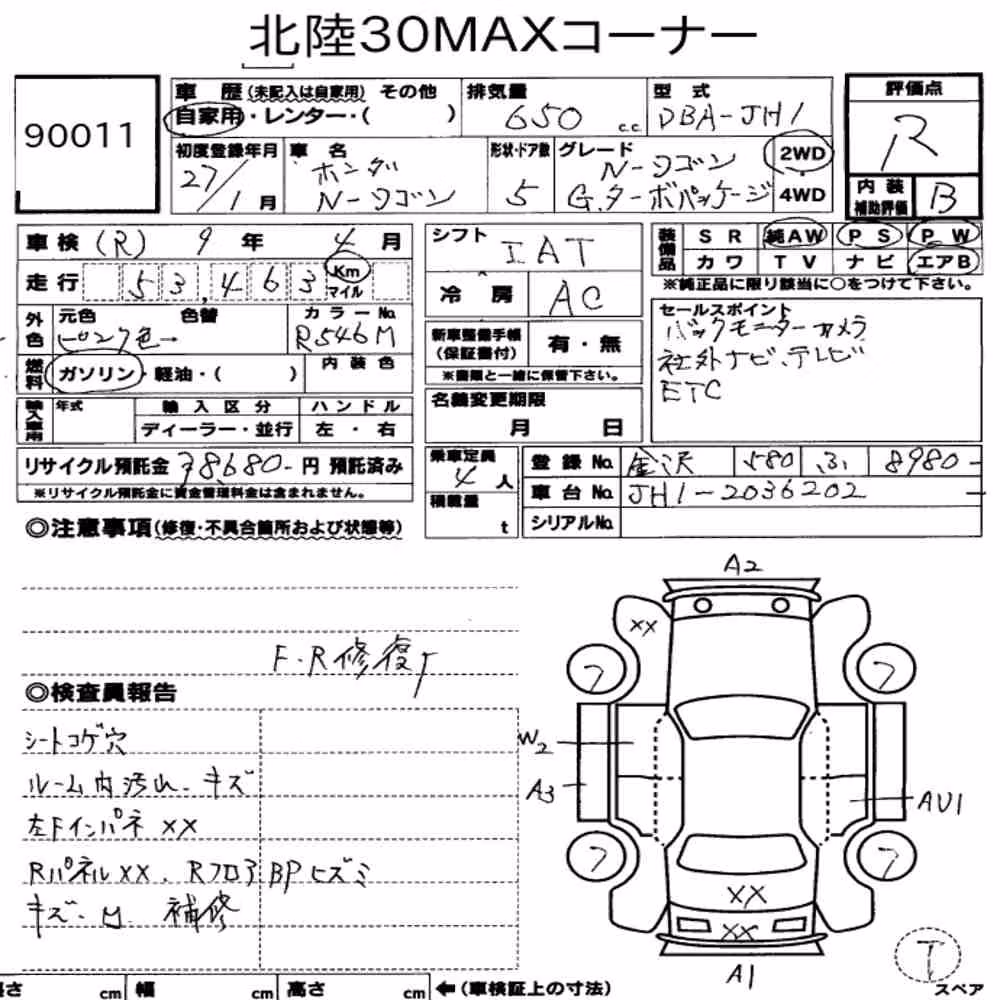 北陸30MAXコーナー
90011
車 歴 (未記入は自家用) その他
自家用・レンター・( )
排気量
650 c.c.
型 式
DBA-JH1
評価点
R
初度登録年月
27/1月
車 名
ホンダ
N-ワゴン
形状・ドア数
5
グレード
N-ワゴン
G.ターボパッケージ
2WD
4WD
内 装
補助評価
B
車検 (R) 9 年 4 月
走行 53,463 Km
マイル
外色
元色 色替
ピンク色→
カラーNo.
R546M
燃料
ガソリン・軽油・( )
内 装 色
輸入車用
年式
輸 入 区 分
ディーラー・並行
ハ ン ド ル
左 ・ 右
リサイクル預託金 円 預託済み
※リサイクル預託金に資金管理料金は含まれません。
シフト
IAT
冷 房
AC
新車整備手帳
(保証書付)
有・無
※書類と一緒に保管下さい。
名義変更期限
月 日
乗車定員
4人
積載量
t
装備品
S R
純AW
P S
P W
カ ワ
T V
ナ ビ
エアB
※純正品に限り該当に○をつけて下さい。
セールスポイント
バックモニターカメラ
社外ナビ、テレビ
ETC
登 録 No. 金沢 580 ふ 8980
車 台 No. JH1-2036202
シリアルNo.
◎注意事項(修復・不具合箇所および状態等)
F.R修復
◎検査員報告
シートコゲ穴
ルーム内汚れ、キズ
左Fインパネ XX
Rパネル XX、Rフロア BPヒズミ
キズ 補修
A2
XX
7
7
W2
A3
AU1
7
7
XX
XX
A1
T
スペア
さ cm
幅 cm
高さ cm
←(車検証上の寸法)